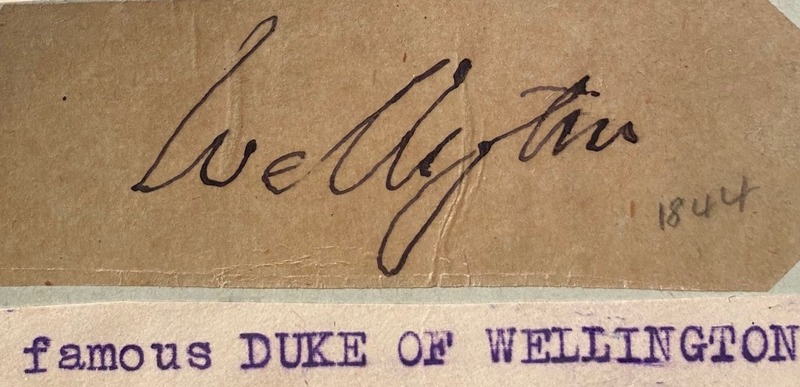 Wellington
1844
famous DUKE OF WELLINGTON